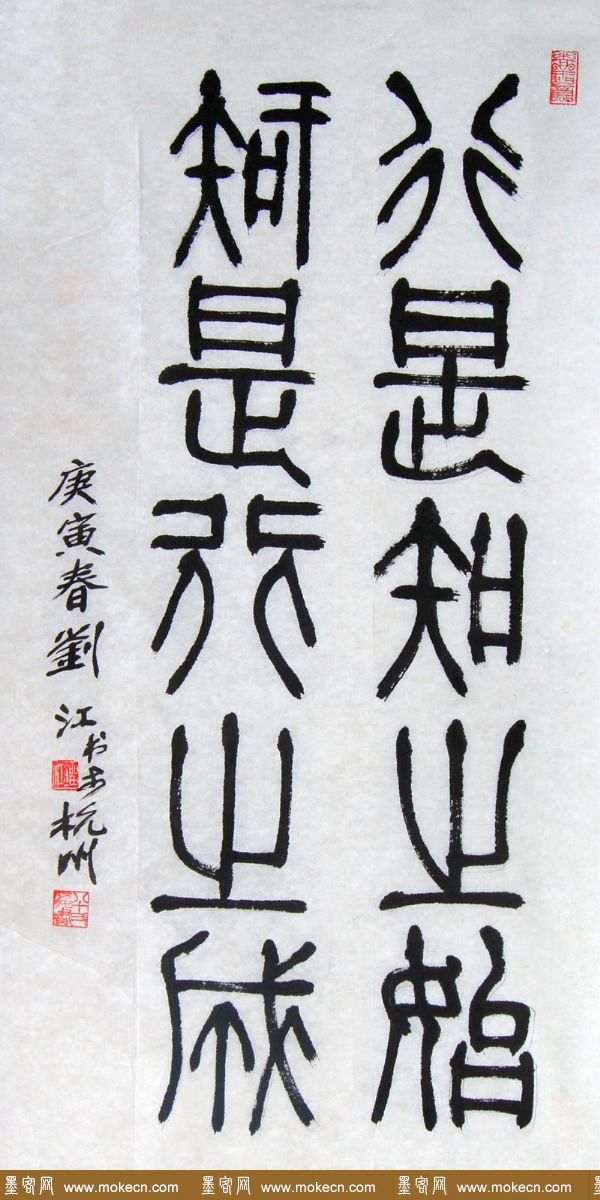 行是知之始
知是行之成
庚寅春劉江书于杭州
墨客网 www.mokecn.com 墨客网 www.mokecn.com 墨客网 www.mokecn.com